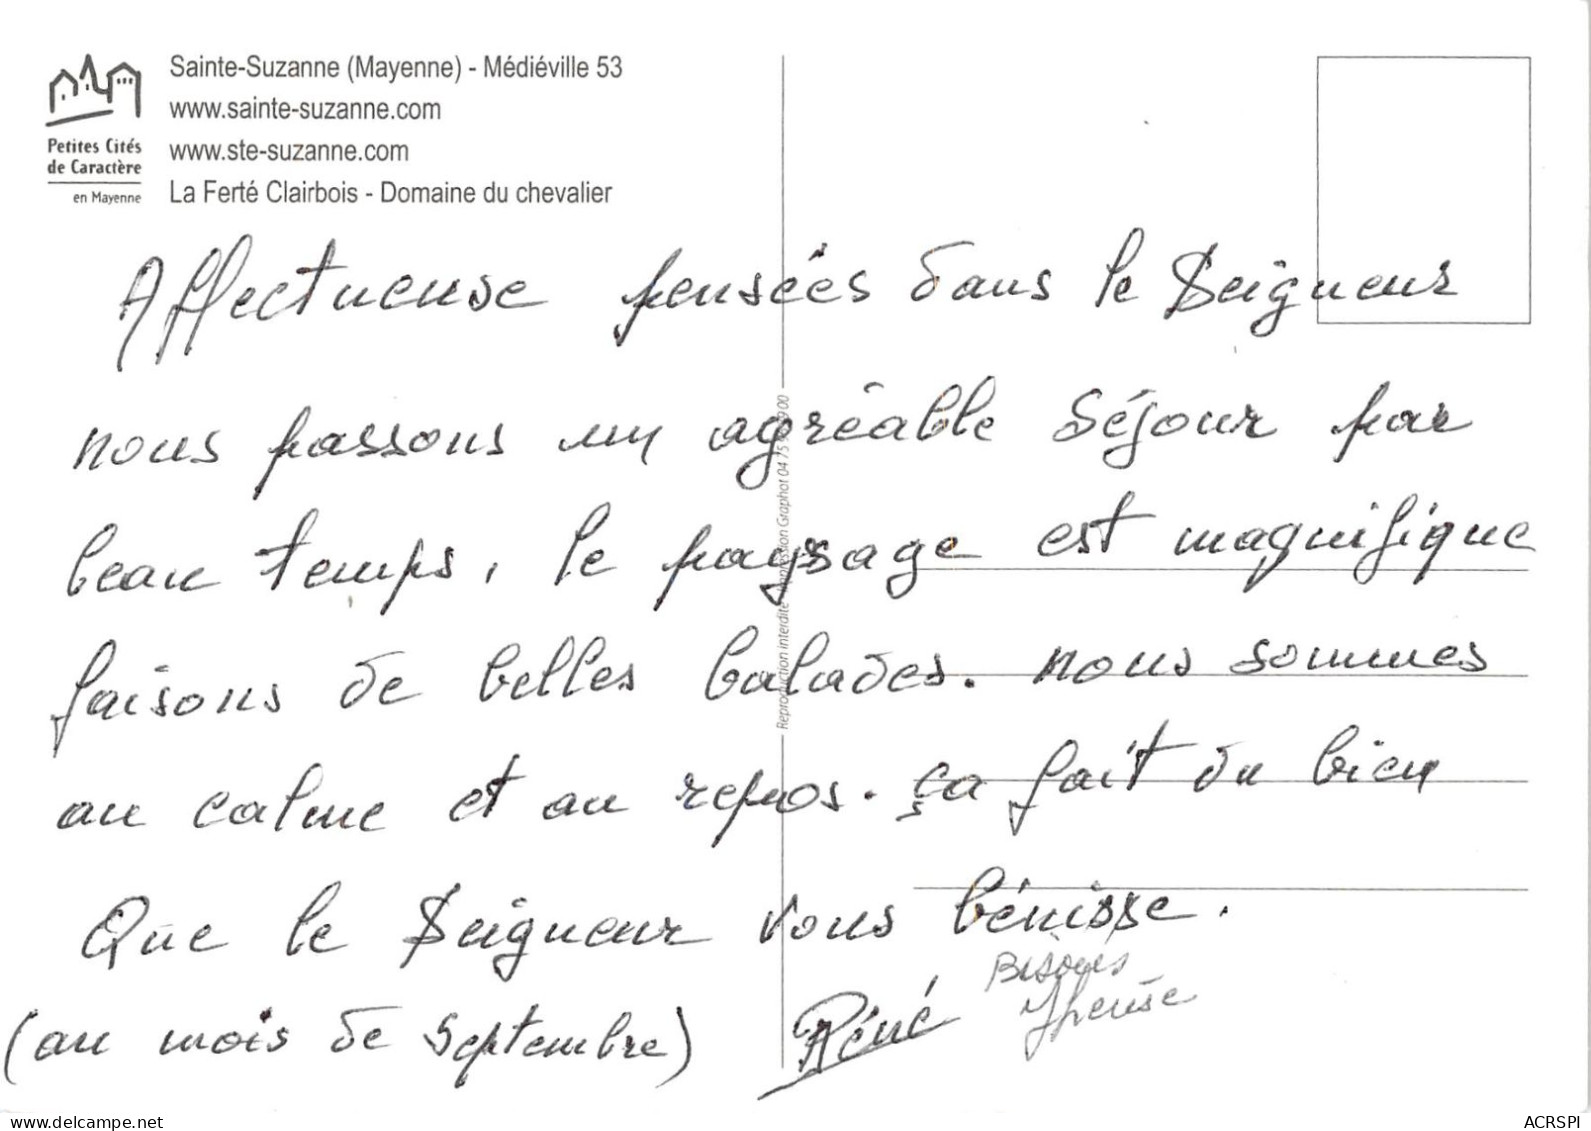 Sainte-Suzanne (Mayenne) - Médiéville 53
www.sainte-suzanne.com
www.ste-suzanne.com
La Ferté Clairbois - Domaine du chevalier
Petites Cités
de Caractère
en Mayenne
Affectueuse pensées dans le Seigneur
nous passons un agréable séjour par
beau temps, le paysage est magnifique
faisons de belles balades. nous sommes
au calme et au repos. ça fait du bien
Que le Seigneur vous bénisse.
(au mois de Septembre)
Réné
Bisous
Reproduction interdite - Impression Graphot 04 75
www.delcampe.net
ACRSPI